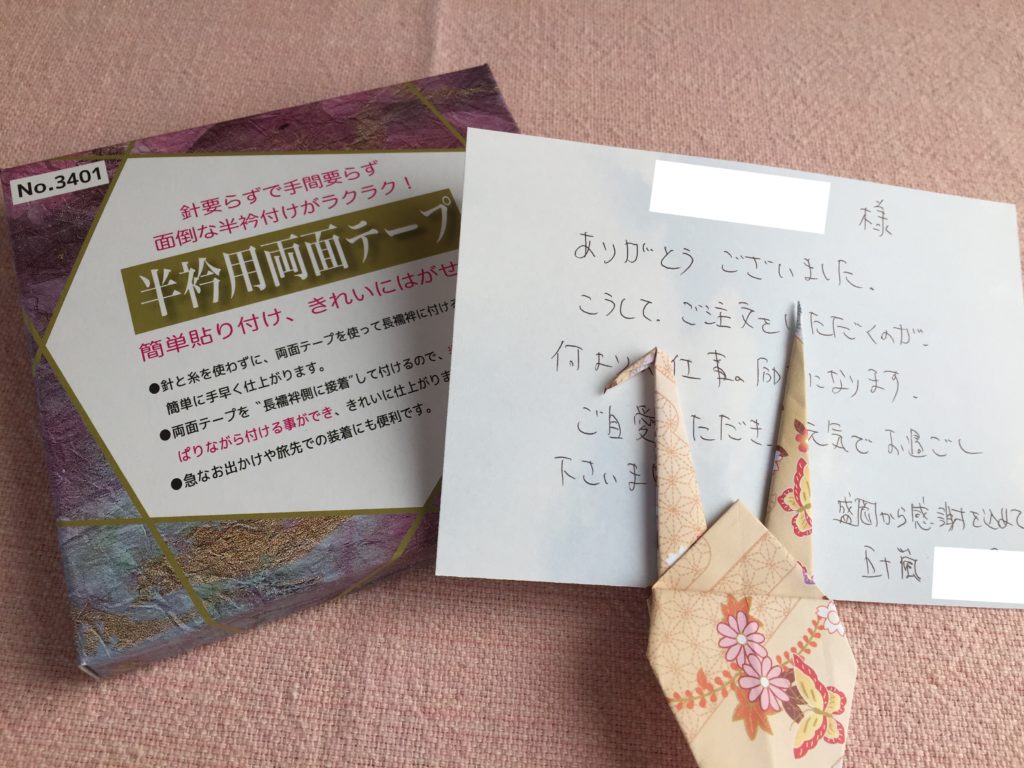 No.3401
針要らずで手間要らず
面倒な半衿付けがラクラク！
半衿用両面テープ
簡単貼り付け、きれいにはがせ
●針と糸を使わずに、両面テープを使って長襦袢に付ける
簡単に手早く仕上がります。
●両面テープを〝長襦袢側に接着〞して付けるので、
ぱりながら付ける事ができ、きれいに仕上がりま
●急なお出かけや旅先での装着にも便利です。
様
ありがとう ございました。
こうして、ご注文を ただくのが、
何より 仕事の励 になります。
ご自愛 ただき、元気で お過ごし
下さいませ
盛岡から感謝を込めて
五十嵐